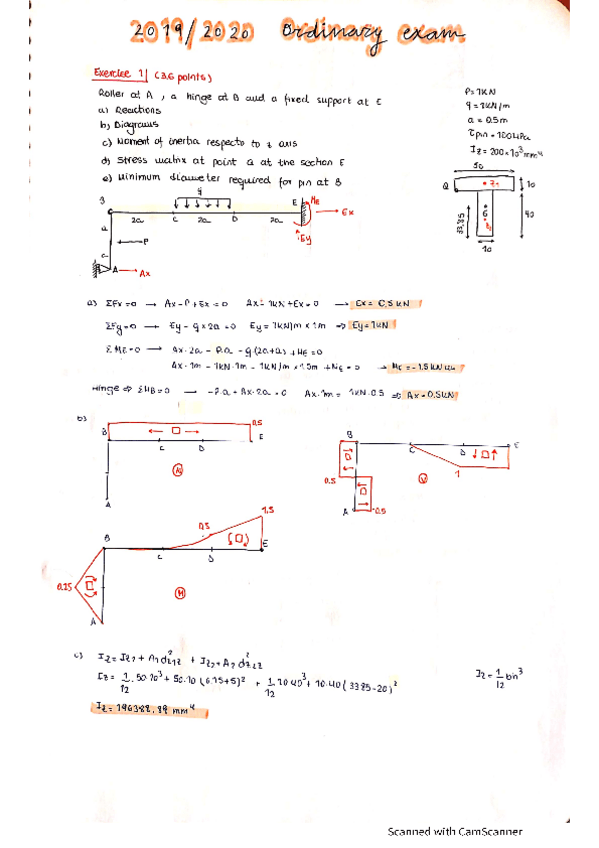 2019/2020 Ordinary exam
Exercise 1 (3.6 points)
Roller at A, a hinge at B and a fixed support at E
a) Reactions
b) Diagrams
c) Moment of inertia respecto to z axis
d) Stress matrix at point Q at the section E
e) Minimum diameter required for pin at B
P=1KN
q=1KN/m
a=0.5m
Iz=200×10³mm⁴
50
Q
10
G
33,85
40
10
q
B
C
D
E
ME
Ex
Ey
2a
2a
2a
a
P
a
A
Ax
a) ΣFx=0 → Ax-P+Ex=0 Ax-1KN+Ex=0 → Ex=0,5KN
ΣFy=0 → Ey-q×2a=0 Ey=1KN/m×1m ⇒ Ey=1KN
ΣME=0 → Ax·2a-P.a-q(2a+a)+ME=0
Ax·1m-1KN·1m-1KN/m×1.5m+ME=0 → ME=-1.5KN·m
Hinge ⇒ ΣMB=0 → -P.a+Ax.2a=0 Ax.1m=1KN.0.5 ⇒ Ax=0,5KN
b)
0.5
B
C
D
E
N
A
B
C
D
E
0.5
V
1
A
0.5
1,5
0.5
B
C
D
E
0.25
M
A
c) Iz=Iz1+A1d²z1z+Iz2+A2d²z2z
Iz=1/12·50·10³+50·10(6.15+5)²+1/12·10·40³+10·40(33.85-20)²
Iz=1/12bh³
Iz=196388,89mm⁴
Scanned with CamScanner